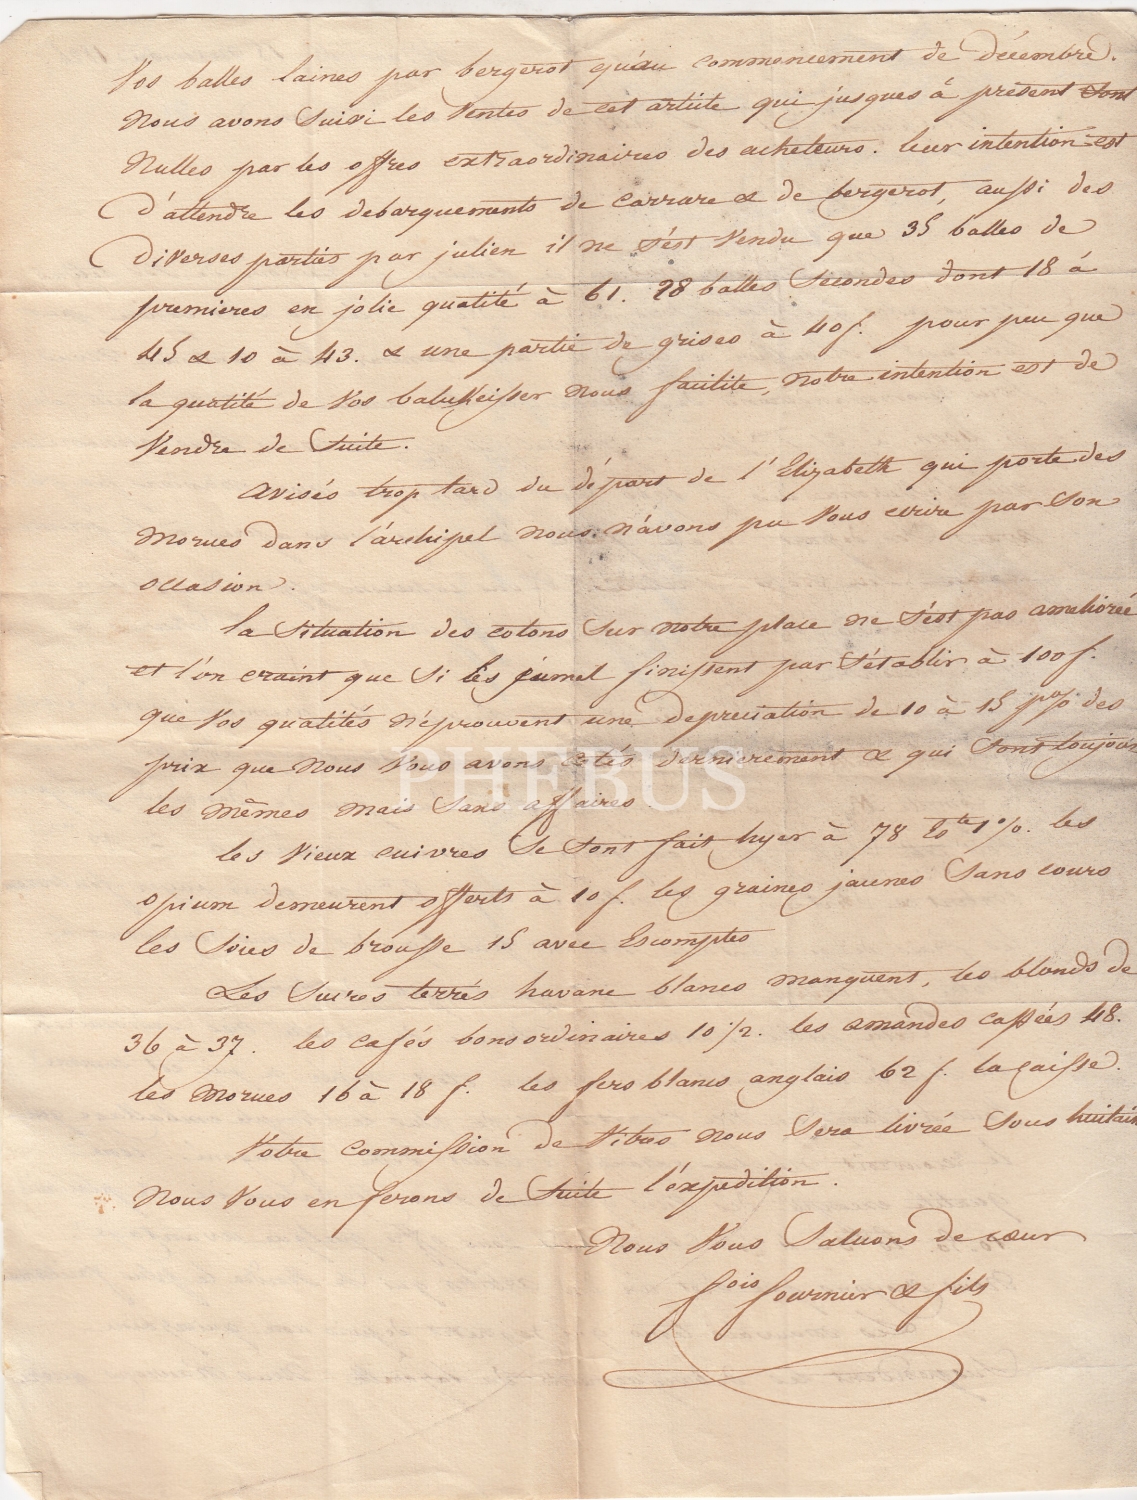 Vos balles laines par bergerot qu'au commencement de décembre.
Nous avons suivi les ventes de cet article qui jusques à présent sont
nulles par les offres extraordinaires des acheteurs. leur intention est
d'attendre les debarquements de carrare & de bergerot, aussi des
diverses parties par julien il ne s'est vendu que 35 balles de
premieres en jolie qualité à 61. 28 balles secondes dont 18 à
45 & 10 à 43. & une partie de grises à 40 f. pour peu que
la qualité de vos balukeisser nous facilite, notre intention est de
vendre de suite.
avisés trop tard du départ de l'Elizabeth qui porte des
morues dans l'archipel nous n'avons pu vous ecrire par son
occasion.
la situation des cotons sur notre place ne s'est pas ameliorée
et l'on craint que si les jumel finissent par s'établir à 100 f.
que vos qualités n'éprouvent une depreciation de 10 à 15 p% des
prix que nous vous avons cotés dernierement & qui sont toujours
les mêmes mais sans affaires.
les vieux cuivres se sont fait hyer à 78 1%. les
opium demeurent offerts à 10 f. les graines jaunes sans cours
les soies de brousse 15 avec Escomptes
Les sucres terrés havane blancs manquent, les blonds de
36 à 37. les cafés bons ordinaires 10 1/2. les amandes cassées 48.
les morues 16 à 18 f. les fers blancs anglais 62 f. la caisse.
Votre commission de vitres nous sera livrée sous huitain
nous vous en ferons de suite l'éxpedition.
Nous vous saluons de cœur
fois fournier & fils
PHEBUS